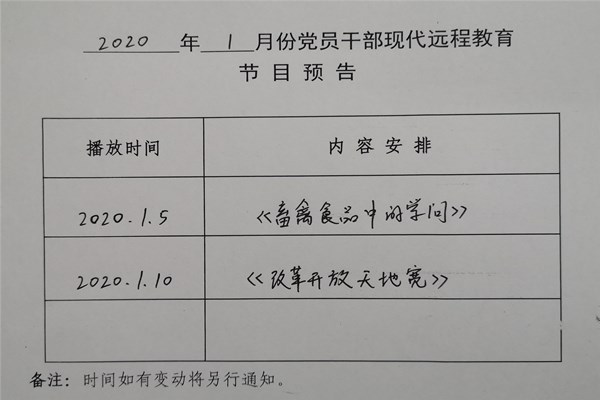 2020 年 1 月份党员干部现代远程教育
节目预告
播放时间 内容安排
2020.1.5 《畜禽食品中的学问》
2020.1.10 《改革开放天地宽》
备注：时间如有变动将另行通知。